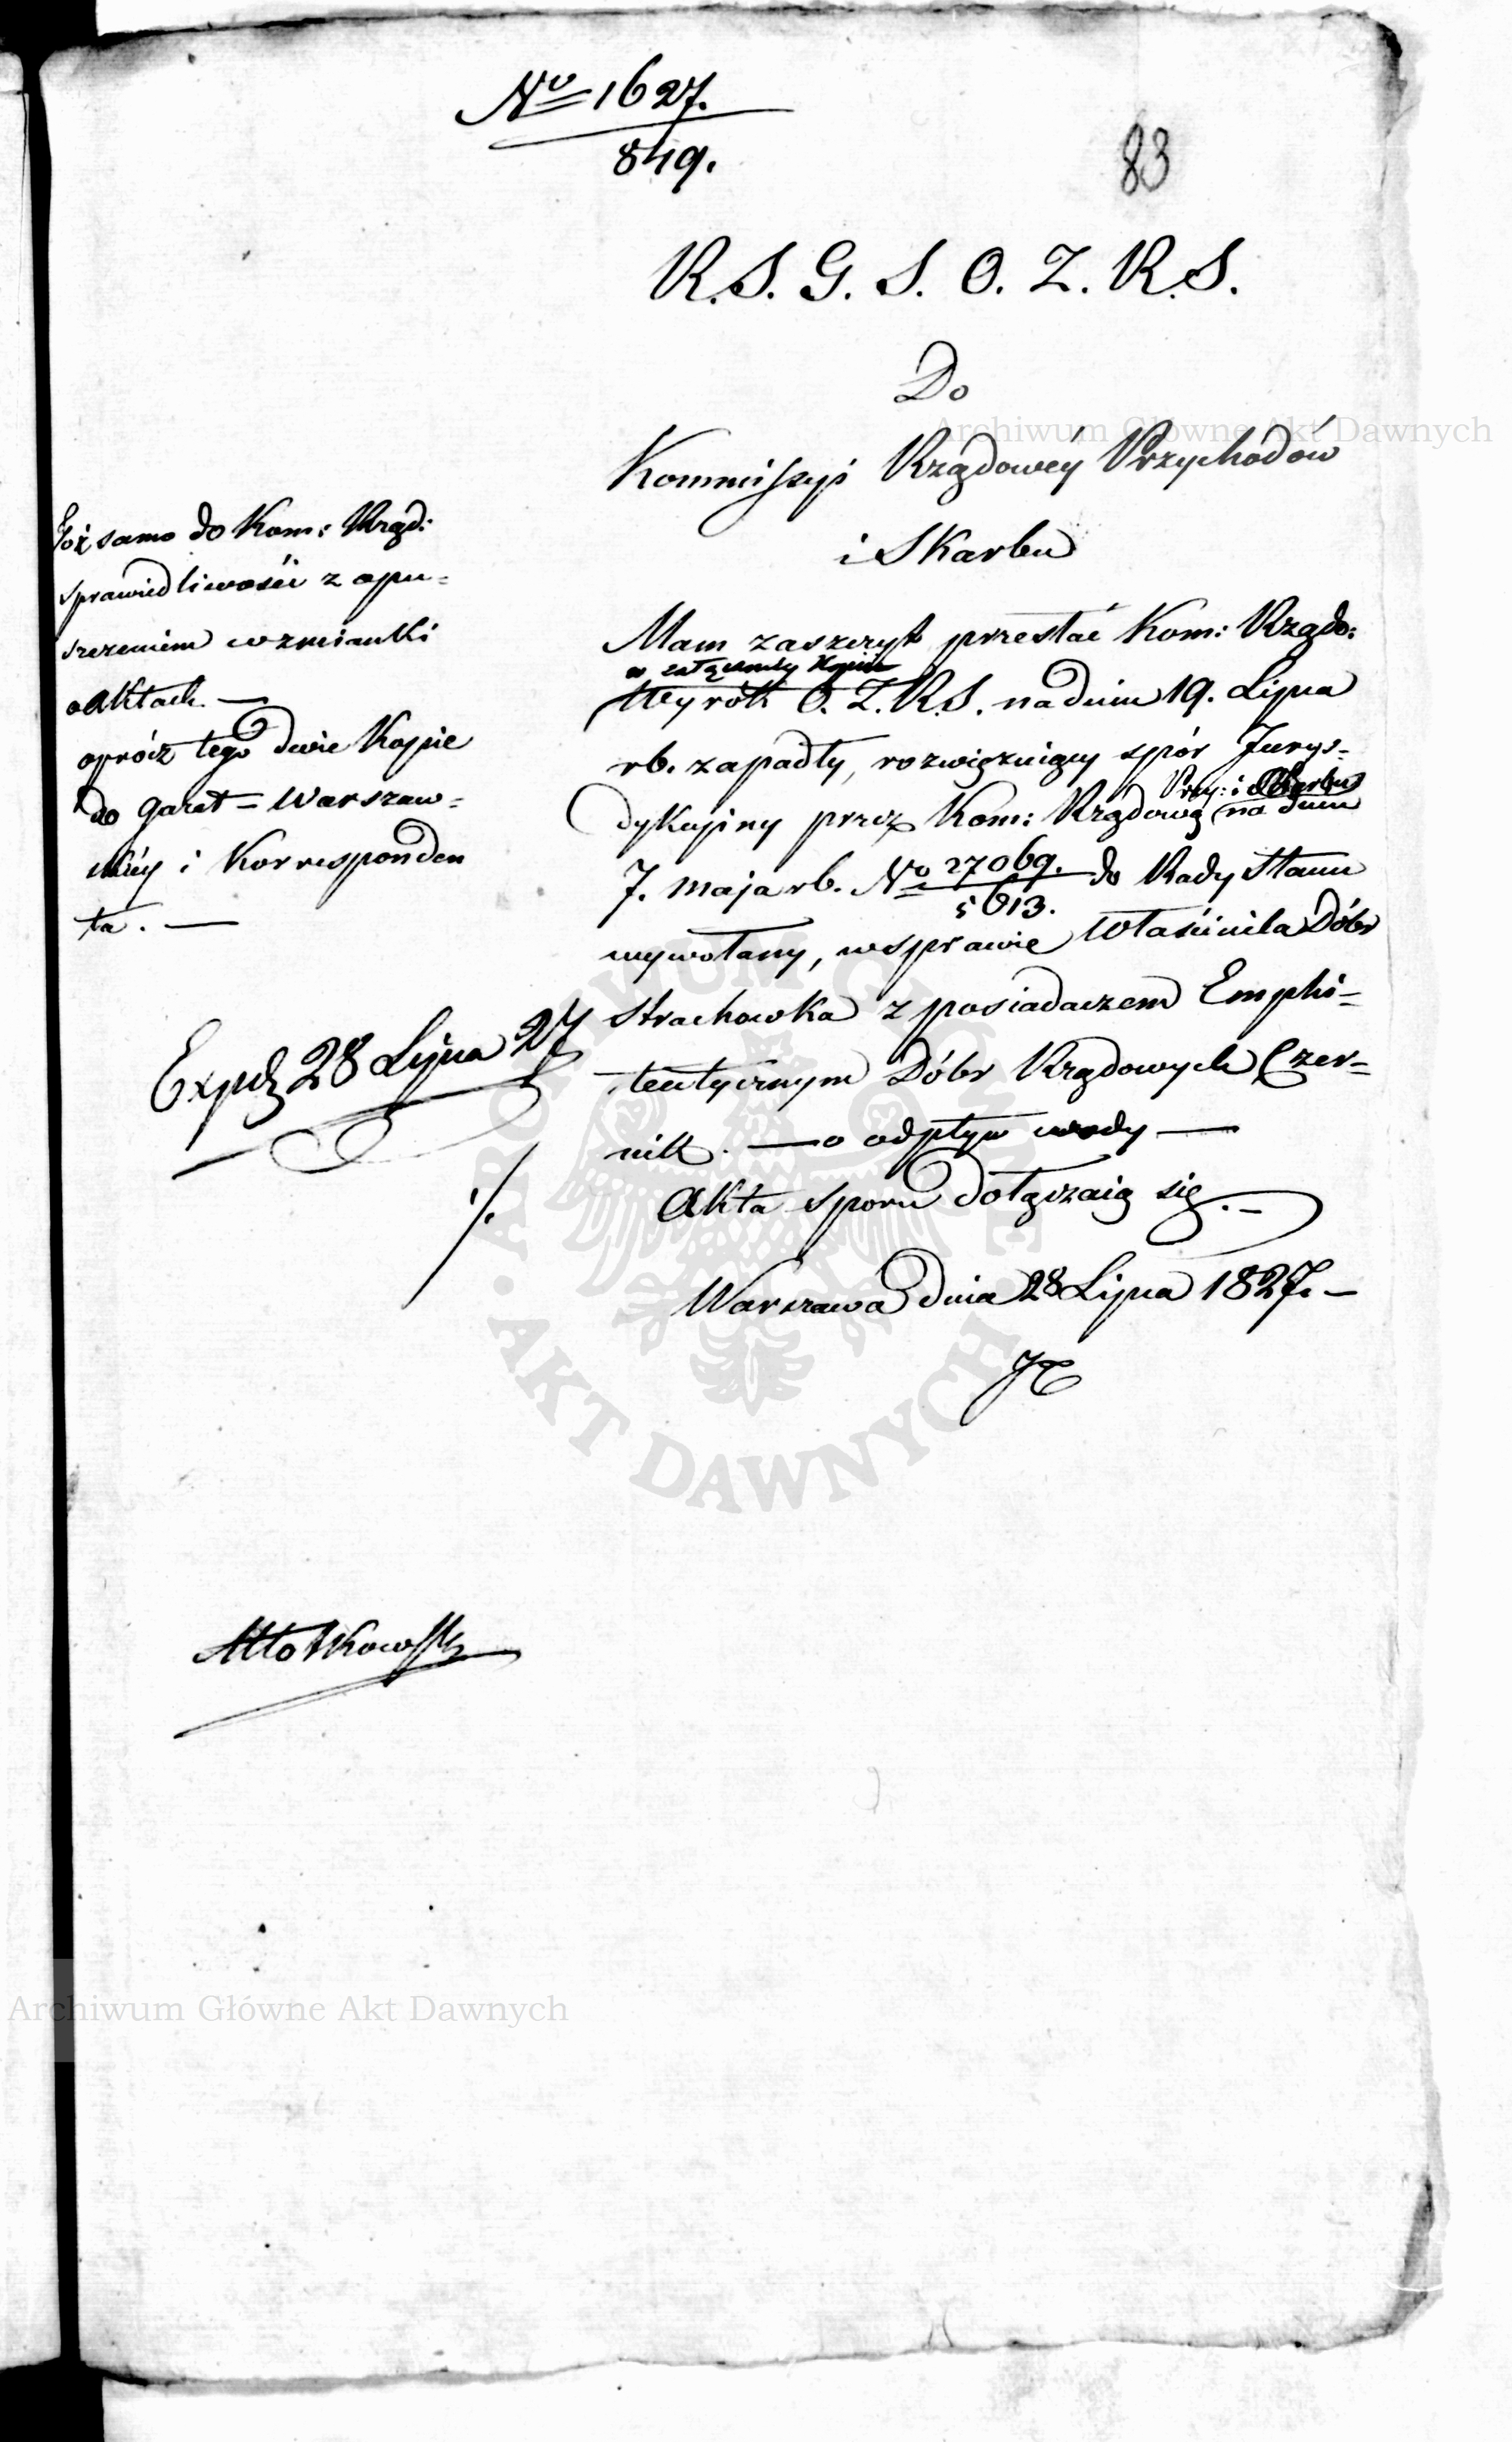 No 1627.
849.
83
R. S. G. S. O. Z. R. S.
Do
Kommissyi Rządowéy Przychodów
i Skarbu
Mam zaszczyt przesłać Kom: Rządo:
w załączonéy Kopii
Wyrok O. Z. R. S. na dniu 19. Lipca
rb. zapadły, rozwiązuiący spór Jurys=
Przy: i Skarbu
dykcyiny przez Kom: Rządową na dniu
7. Maja rb. No 27069.
5613.
do Rady Stanu
wywołany, w sprawie Właściciela Dóbr
Strachowka z posiadaczem Emphi=
teutycznym Dóbr Rządowych Czer=
nik. — o odpływ wody —
Akta sporu dołączaią się. —
Warszawa dnia 28 Lipca 1827. —
Toż samo do Kom: Rząd:
Sprawiedliwości z opu=
szczeniem wzmianki
o Aktach. —
oprócz tego dwie Kopie
do Gazet = Warszaw=
skiéy i Korresponden
ta. —
Exped 28 Lipca 27
Archiwum Główne Akt Dawnych
Archiwum Główne Akt Dawnych
ARCHIWUM GŁÓWNE
AKT DAWNYCH